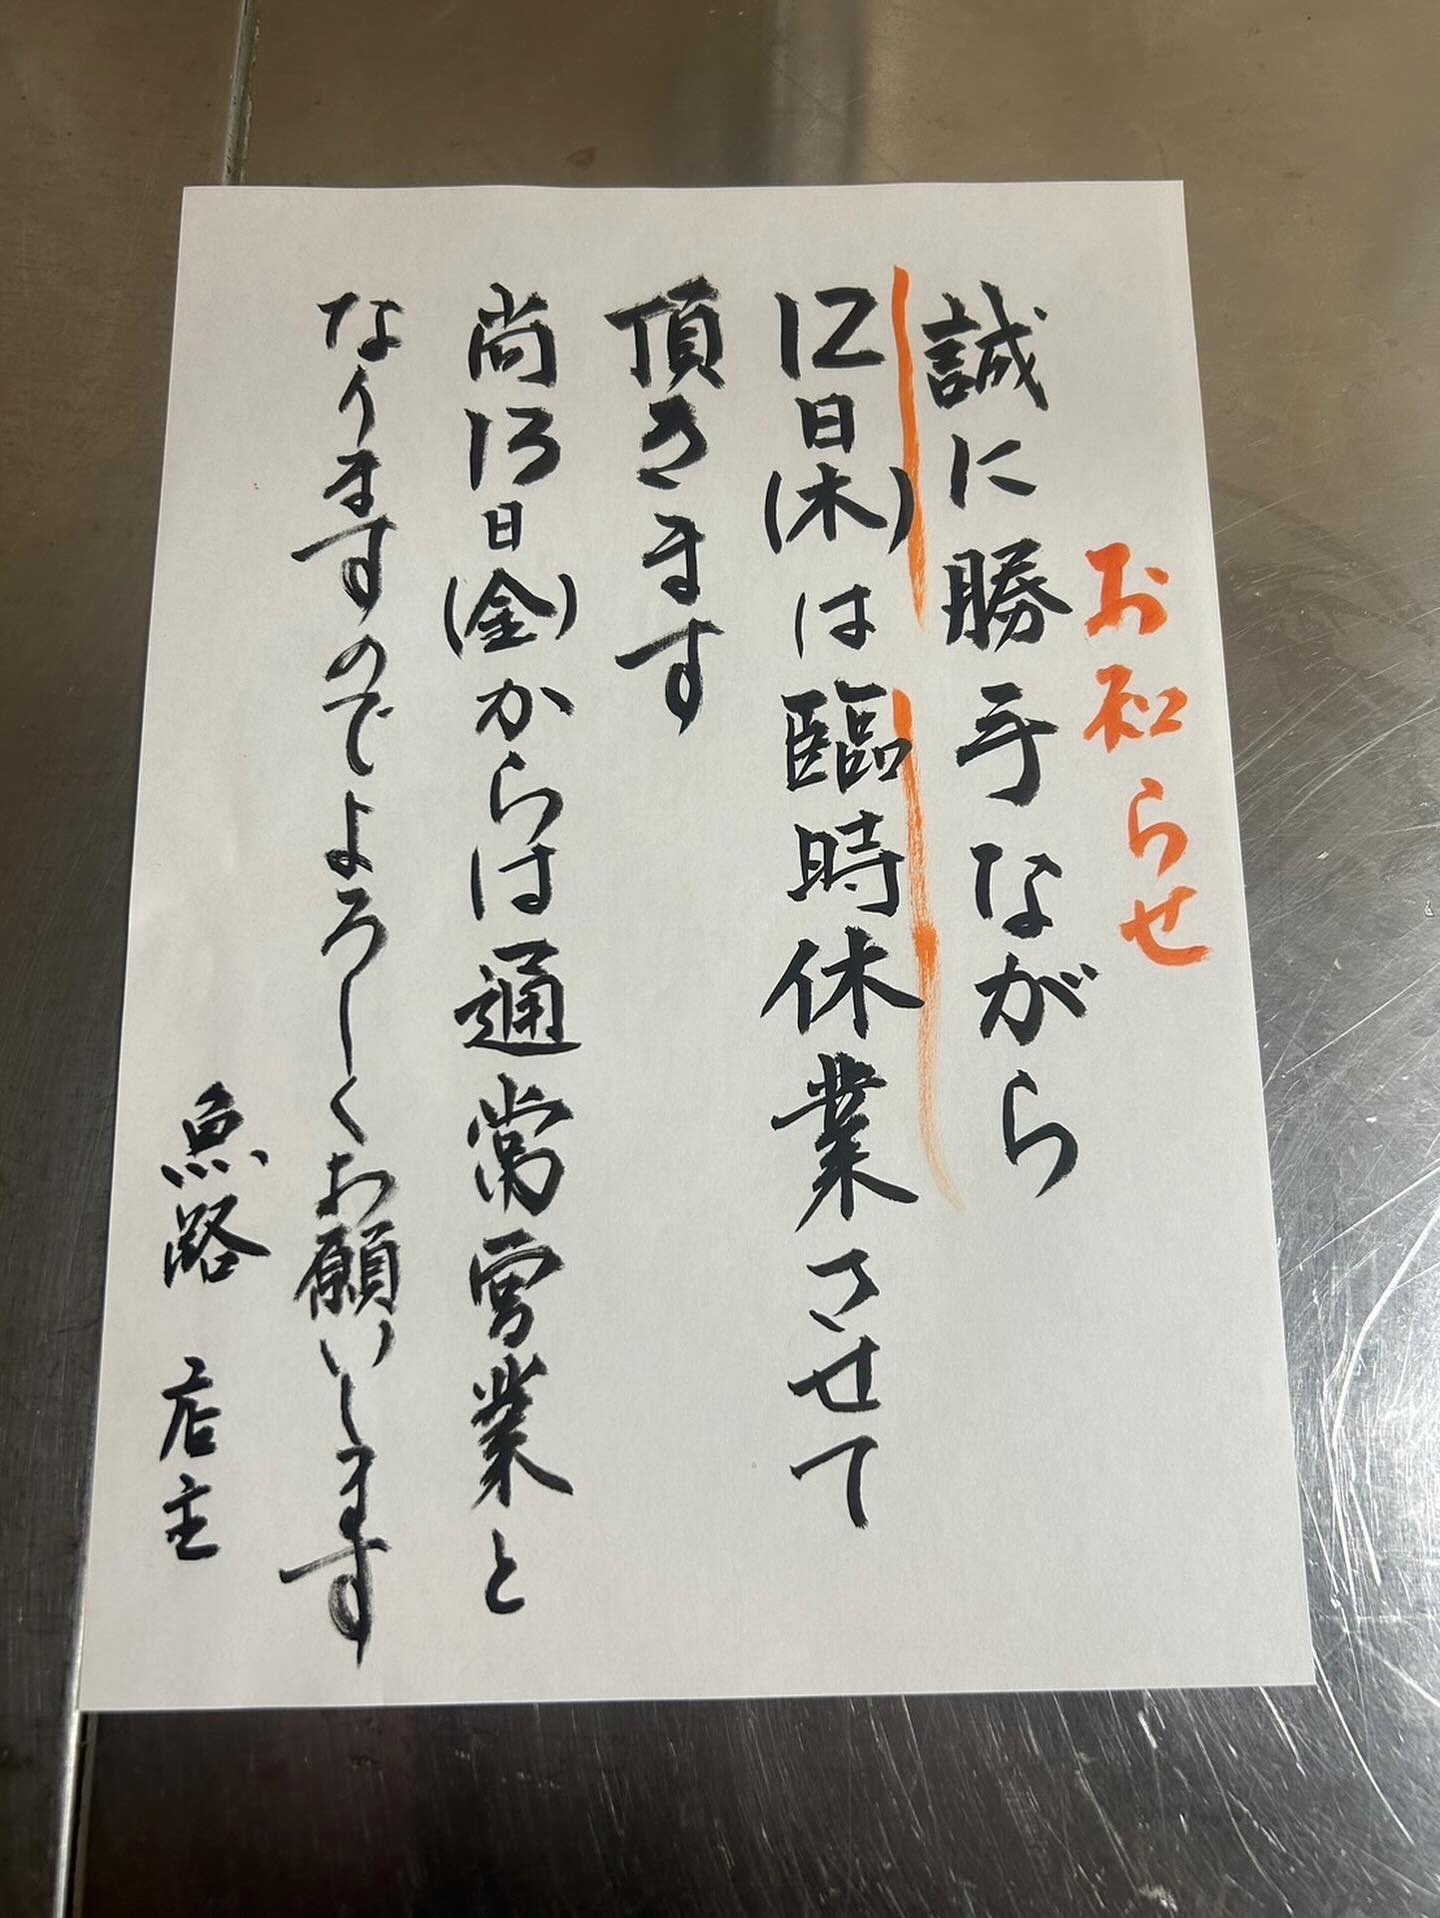 お知らせ
誠に勝手ながら
12日(木)は臨時休業させて
頂きます
尚13日(金)からは通常営業と
なりますのでよろしくお願いします
魚路 店主